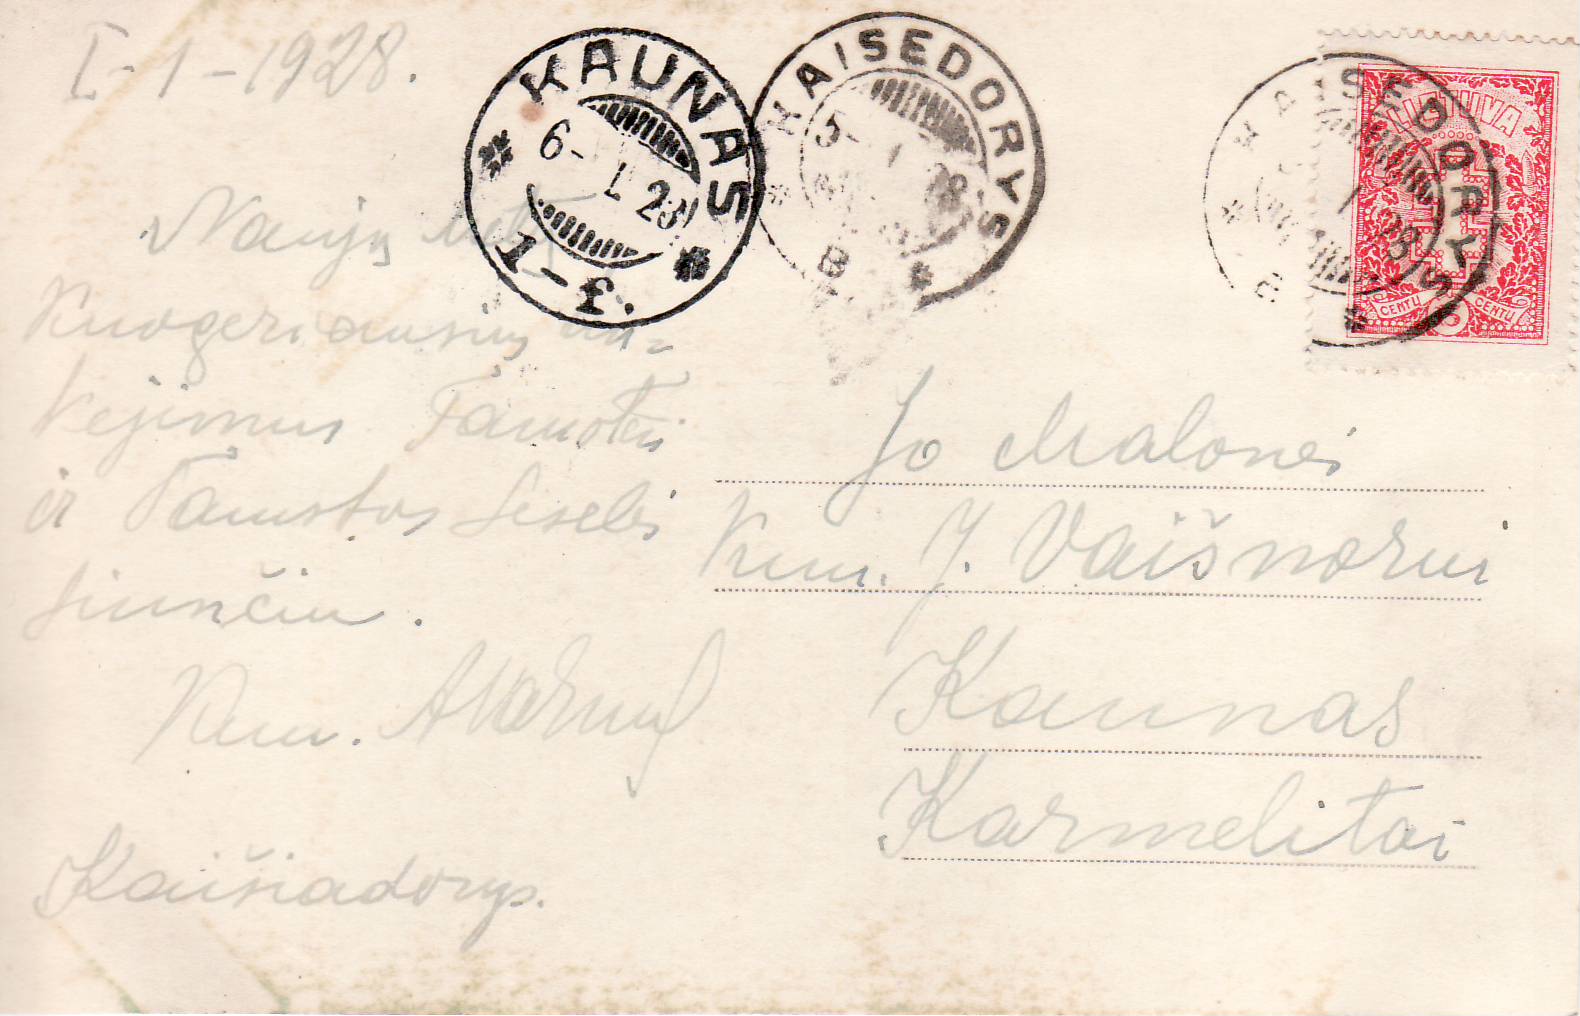 I-1-1928.
KAUNAS
6-I 28
3-1
KAISEDORYS
5- I 28
B
KAISEDORYS
I 28
LIETUVA
CENTŲ CENTŲ
Naujų Metų
Kuogeriausių lin-
kėjimus Tamstai
ir Tamstos Seselei
siunčiu.
Kun.
Kaišiadorys.
Jo Malonei
Kun. J. Vaišnorui
Kaunas
Karmelitai